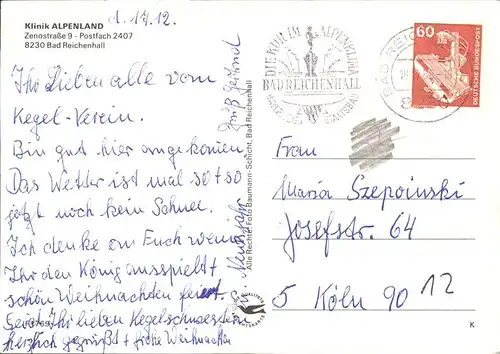 Klinik ALPENLAND
Zenostraße 9 - Postfach 2407
8230 Bad Reichenhall
d. 17.12.
Ihr Lieben alle vom
Kegel-Verein.
Bin gut hier angekommen
Das Wetter ist mal so + so
jetzt noch kein Schnee.
Ich denke an Euch wenn
Ihr den König ausspielt +
schön Weihnachten feiert.
Seid Ihr lieben Kegelschwestern
herzlich gegrüßt + frohe Weihnachten
Neujahr
Alle Rechte: Foto Baumann-Schicht, Bad Reichenhall
DIE KUR IM ALPENKLIMA
BAD REICHENHALL
BAYER. STAATSBAD
BAD REICHENHALL
60
DEUTSCHE BUNDESPOST
Frau
Maria Szepoinski
Josefstr. 64
5 Köln 90 12
K